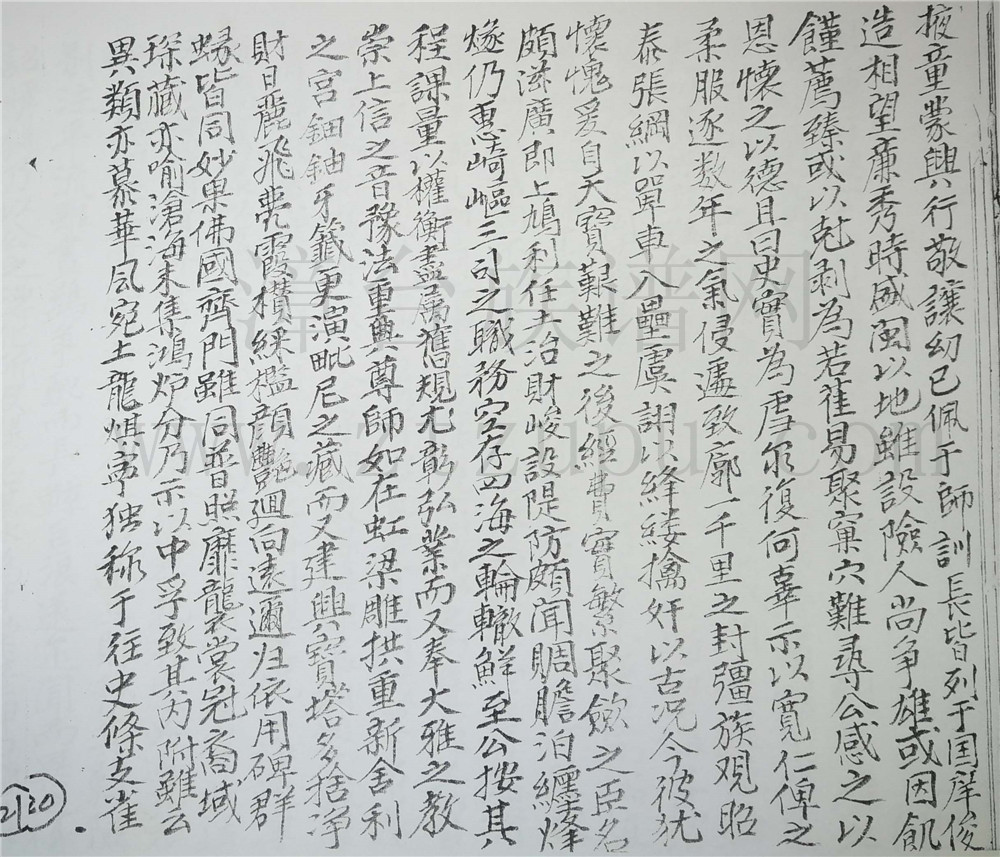 掖童蒙興行敬讓幼已佩于師訓長皆列于国庠俊
造相望廉秀時盛閩以地雖設險人尚爭雄或因飢
饉荐臻或以尅剥為若萑易聚窠穴難尋公感之以
恩懷之以德且曰吏實為虐尔復何辜示以寬仁俾之
柔服逐数年之氣侵遽致廓一千里之封疆族观昭
泰張綱以單車入壘虞詡以絳縷擒奸以古况今彼犹
懷愧爰自天寶艱難之後經費寔繁聚斂之臣名
頗滋廣即上鳩利任土治財峻設隄防頗闻賙贍泊纒烽
燧仍惠崎嶇三司之職務空存四海之輪轍鮮至公按其
程課量以權衡盡属舊規尤彰弘業而又奉大雅之教
崇上信之音豫法重興尊師如在虹梁雕拱重新舍利
之宮鈿軸牙籤更演毗尼之藏而又建興寶塔多捨净
財日麗飛甍霞横綵檻顔艷廻向遠邇归依用碑群
蝝皆同妙果佛國齊門雖同普照靡襲裳冠裔域
琛藏亦喻滄海未隼鴻炉分乃示以中孚致其内附雖云
異類亦慕華風宛土龍媒寧独称于往史條支雀
21 20
漳台族谱网
www.zt-zupu.com